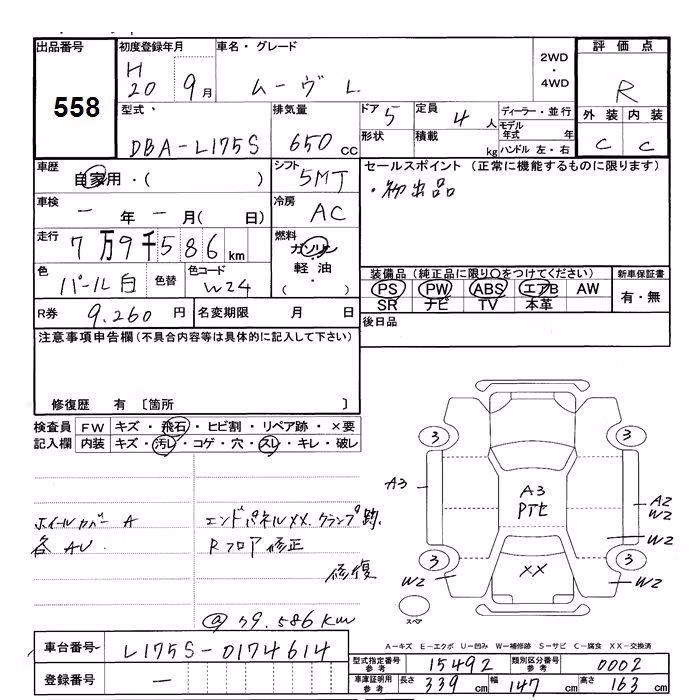 出品番号
558
初度登録年月
H
20 9月
車名・グレード
ムーヴ L
2WD
・
4WD
評価点
R
外装 内装
C C
型式・
DBA-L175S
排気量
650 cc
ドア 5
形状
定員 4 人
積載 kg
ディーラー・並行
モデル年式 年
ハンドル 左・右
車歴
自家用・( )
シフト
5MT
セールスポイント(正常に機能するものに限ります)
・初出品
車検
ー 年 ー 月( 日)
冷房
AC
走行
7万9千586km
燃料
ガソリン
軽油
( ・ )
色
パール白
色替
色コード
W24
装備品(純正品に限り○をつけてください)
PS PW ABS エアB AW
SR ナビ TV 本革
新車保証書
有・無
R券 9,260 円
名変期限 月 日
後日品
注意事項申告欄(不具合内容等は具体的に記入して下さい)
修復歴 有 〔箇所 〕
検査員 FW キズ・飛石・ヒビ割・リペア跡・×要
記入欄 内装 キズ・汚レ・コゲ・穴・スレ・キレ・破レ
ホイールカバー A
各 AU.
エンドパネルXX. クランプ跡.
Rフロア修正
修復
@79.586Km
3
3
3
3
A3
A3
PTヒ
A2
W2
W2
W2
W2
XX
スペア
A-キズ E-エクボ U-凹み W-補修跡 S-サビ C-腐食 XX-交換済
車台番号 L175S-0174614
登録番号 ー
型式指定番号 参考 15492
類別区分番号 参考 0002
車庫証明用 参考 長さ 339 cm 幅 147 cm 高さ 163 cm